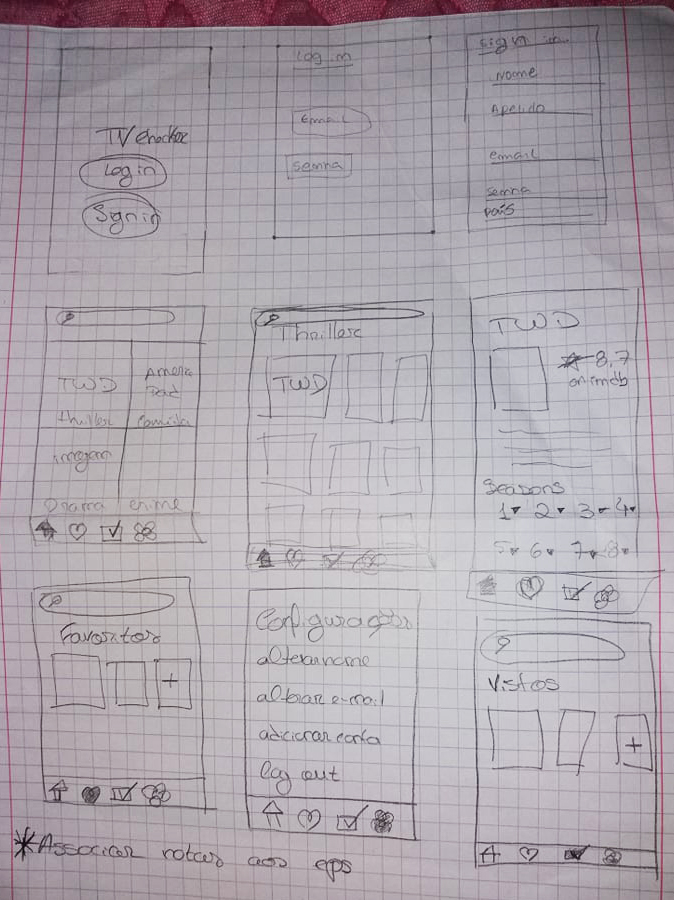 TV checker
Log in
Sign in
Log in
Email
senha
sign in
Nome
Apelido
email
senha
país
TWD
America
Dad
thriller
Comédia
Drama crime
Thriller
TWD
TWD
8,7
on imdb
Seasons
1 2 3 4
5 6 7 8
Favoritos
Configurações
alterar nome
alterar e-mail
adicionar conta
log out
Vistos
+
+
*Associar notas aos eps